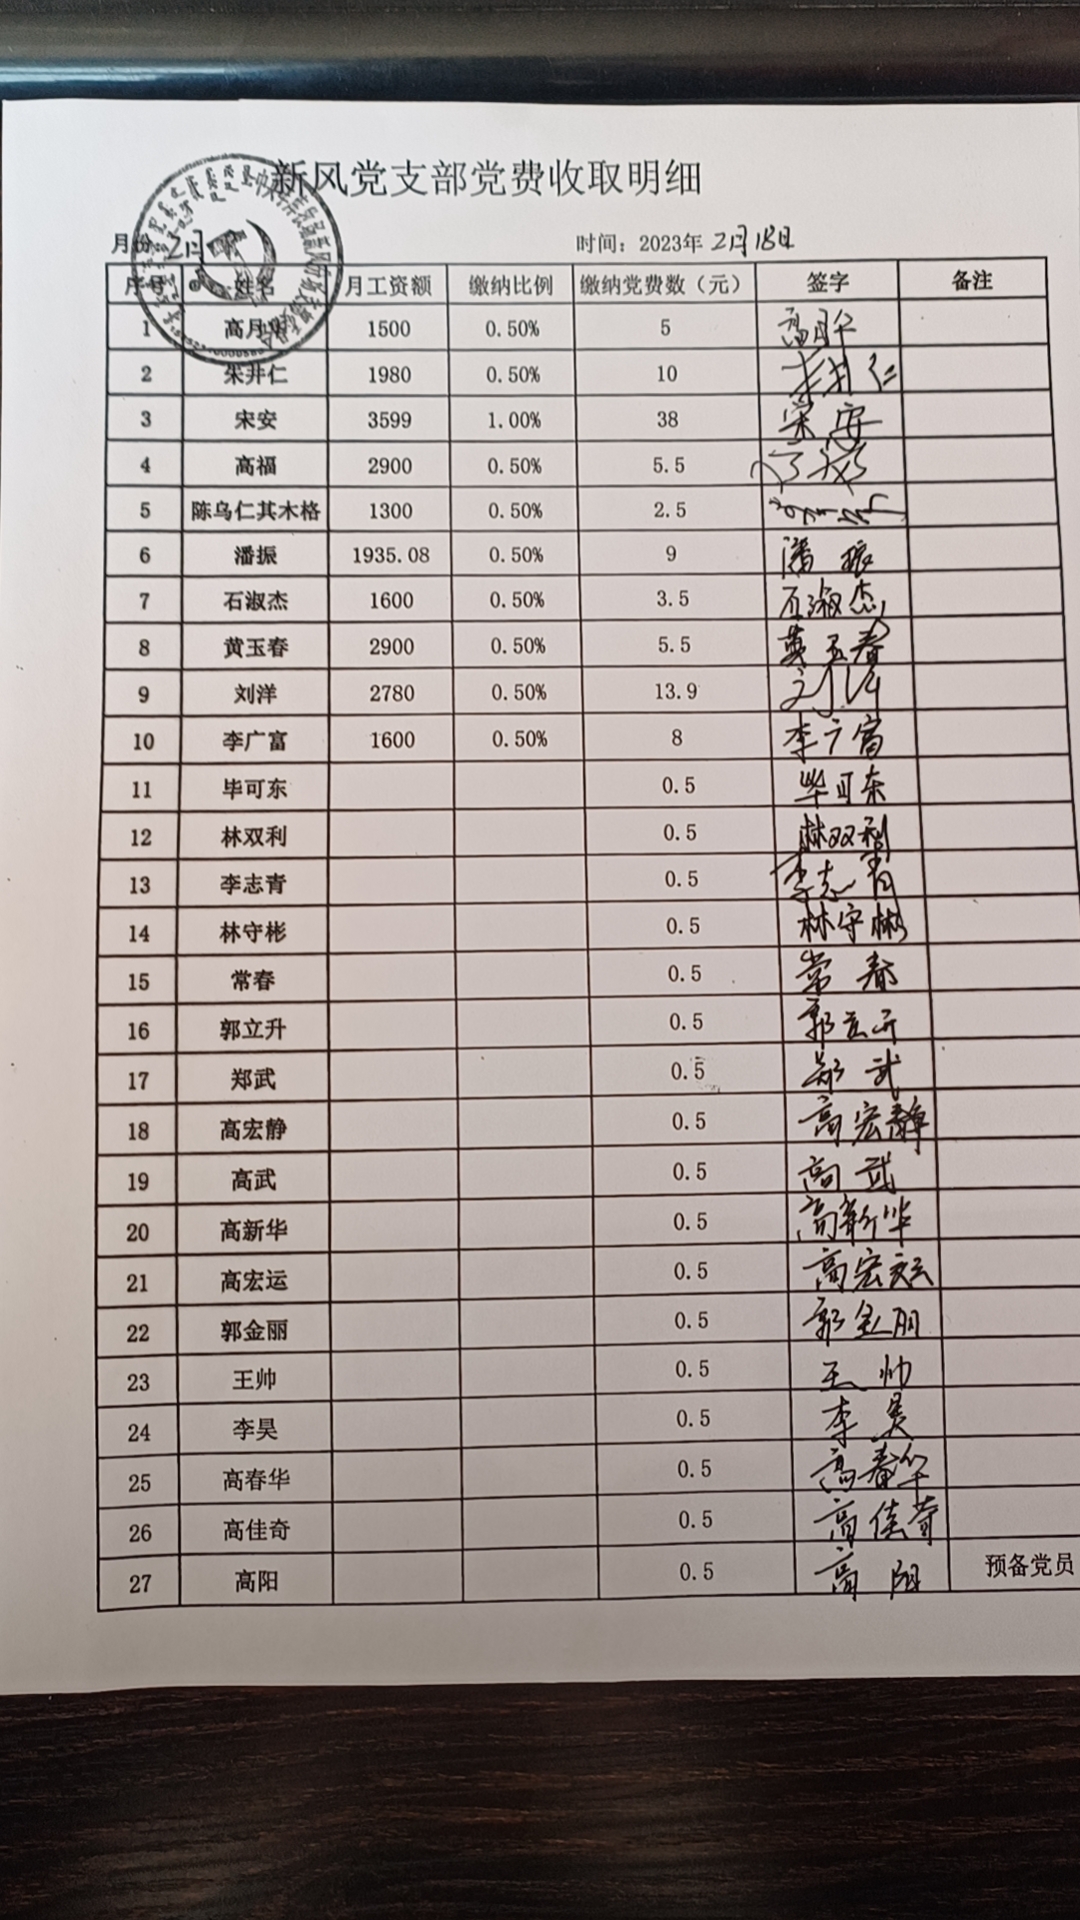 新风党支部党费收取明细
月份 2月 时间：2023年 2月18日
序号 姓名 月工资额 缴纳比例 缴纳党费数（元） 签字 备注
1 高月 1500 0.50% 5 高月
2 朱井仁 1980 0.50% 10 朱井仁
3 宋安 3599 1.00% 38 宋安
4 高福 2900 0.50% 5.5
5 陈乌仁其木格 1300 0.50% 2.5
6 潘振 1935.08 0.50% 9 潘振
7 石淑杰 1600 0.50% 3.5 石淑杰
8 黄玉春 2900 0.50% 5.5 黄玉春
9 刘洋 2780 0.50% 13.9 刘洋
10 李广富 1600 0.50% 8 李广富
11 毕可东 0.5 毕可东
12 林双利 0.5 林双利
13 李志青 0.5 李志青
14 林守彬 0.5 林守彬
15 常春 0.5 常春
16 郭立升 0.5 郭立升
17 郑武 0.5 郑武
18 高宏静 0.5 高宏静
19 高武 0.5 高武
20 高新华 0.5 高新华
21 高宏运 0.5 高宏运
22 郭金丽 0.5 郭金丽
23 王帅 0.5 王帅
24 李昊 0.5 李昊
25 高春华 0.5 高春华
26 高佳奇 0.5 高佳奇
27 高阳 0.5 高阳 预备党员